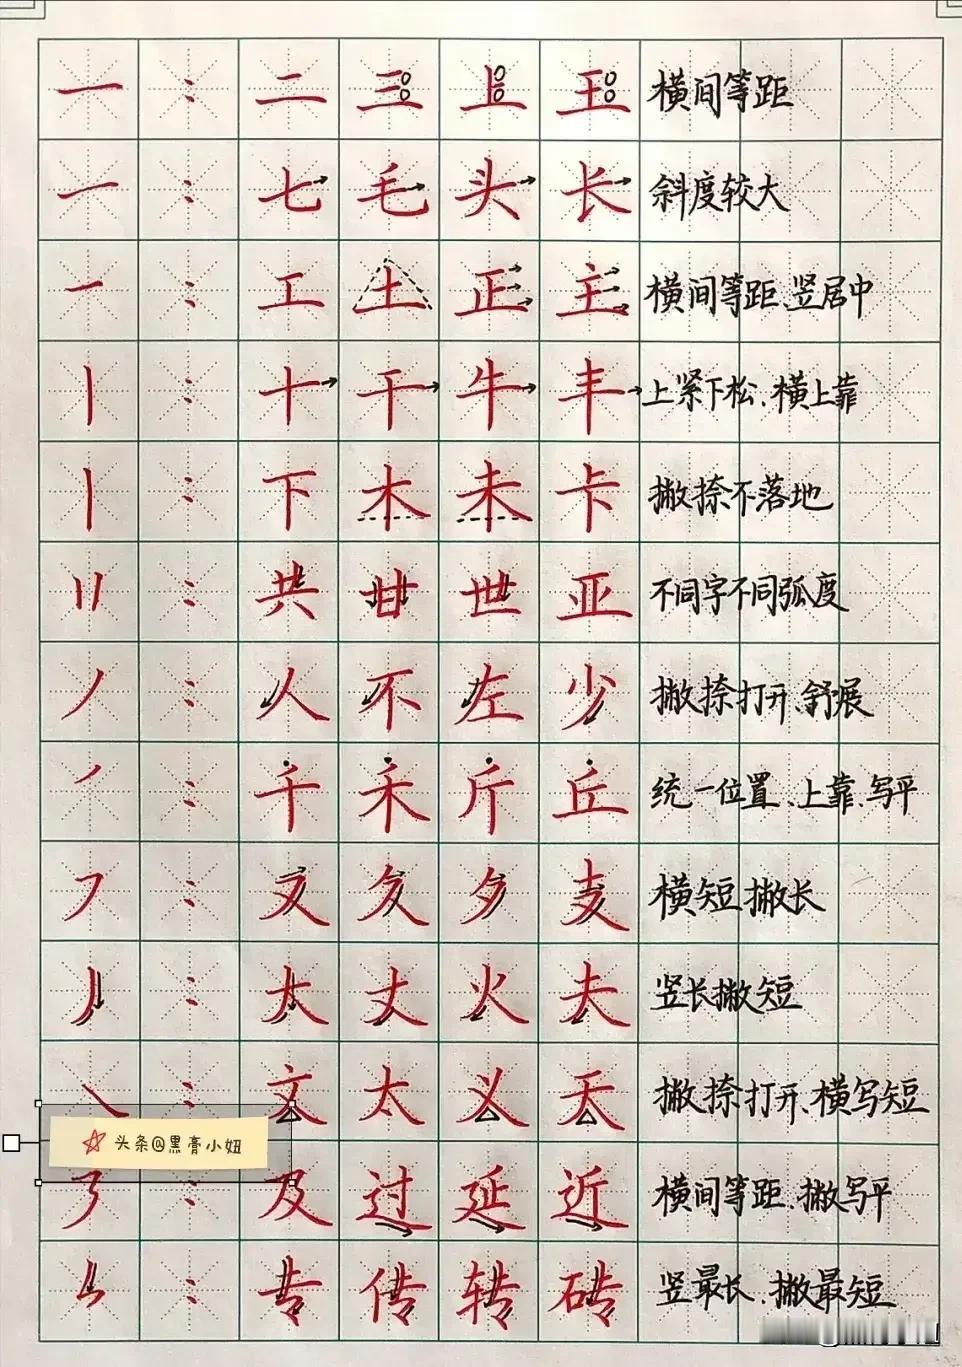 一：二三上王 横间等距
一：七毛头长 斜度较大
一：工土正主 横间等距、竖居中
丨：十干牛丰 上紧下松、横上靠
丨：下木未卡 撇捺不落地
〢：共甘世亚 不同字不同弧度
丿：人不左少 撇捺打开、舒展
丿：千禾斤丘 统一位置、上靠、写平
㇇：又夂夕麦 横短撇长
丿：大丈火夫 竖长撇短
㇏：文太义天 撇捺打开、横写短
头条@黑膏小妞
㇋：及过延近 横间等距、撇写平
㇉：专传转砖 竖最长、撇最短